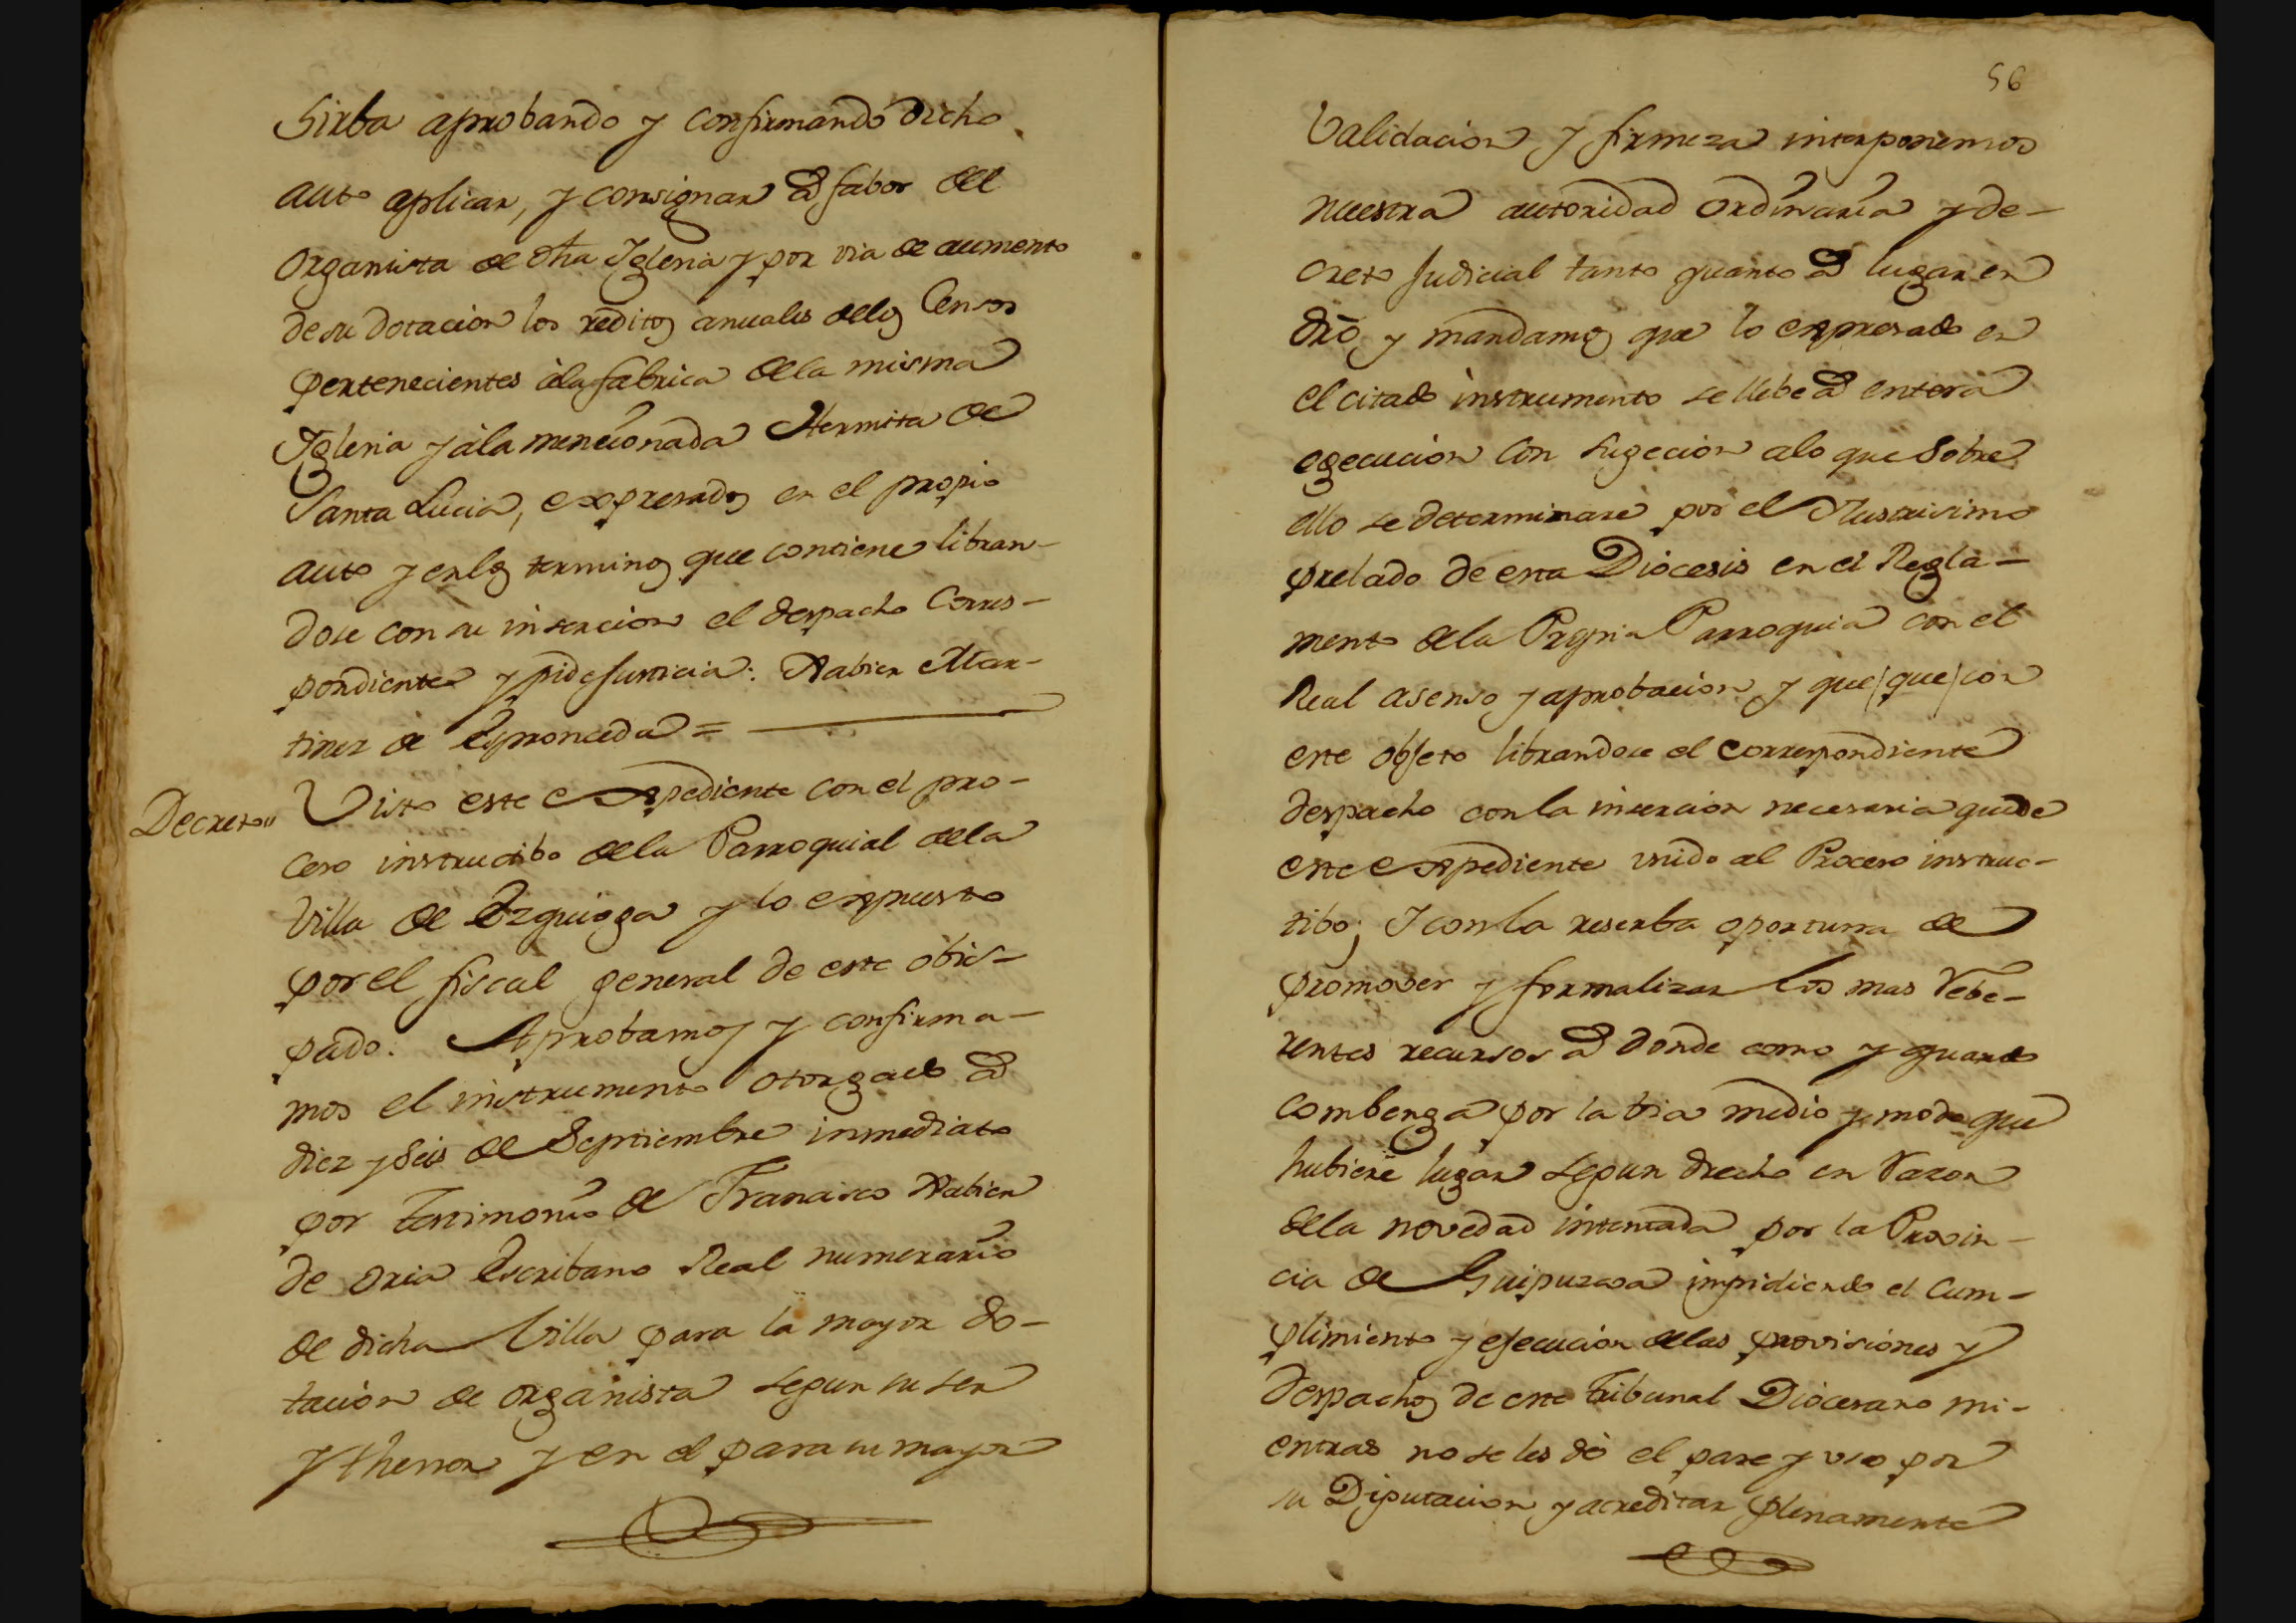 Sirba aprobando y confirmando dicho
auto aplicar, y consignar a fabor del
Organista de dha Iglesia y por via de aumento
de su dotacion los reditos anuales delos Censos
pertenecientes àla fabrica dela misma
Iglesia y àla mencionada Hermita de
Santa Lucia, expresados en el propio
auto y enlos terminos que contiene libran-
dose con su insercion el despacho Corres-
pondiente y pide Justicia: Xabier Mar-
tinez de Espronceda =
Decreto"
Visto este expediente con el pro-
ceso instructibo dela Parroquial dela
Villa de Ezquioga y lo expuesto
por el fiscal general de este obis-
pado: Aprobamos y confirma-
mos el instrumento otorgado a
diez y seis de Septiembre inmediato
por testimonio de Francisco Xabier
de Oria Escribano Real numerario
de dicha Villa para la mayor do-
tacion de organista segun su ser
y thenor y en el para su mayor
56
Validacion y firmeza interponemos
nuestra autoridad ordinaria y de-
creto Judicial tanto quanto a lugar en
dro, y mandamos que lo expresado en
el citado instrumento se llebe a entera
egecucion con sugecion a lo que sobre
ello se determinare por el Ilustrisimo
prelado de esta Diocesis en el Regla-
mento dela Propria Parroquia con el
Real asenso y aprobacion y que (que) con
este objeto librandose el correspondiente
despacho con la insercion necesaria quede
este expediente unido al Proceso instruc-
tibo; Y con la reserba oportuna de
promober y formalizar los mas rebe-
rentes recursos a donde como y quando
combenga por la bia medio y modo que
hubiere lugar segun drecho en razon
dela novedad intentada por la Provin-
cia de Guipuzcoa impidiendo el Cum-
plimiento y ejecucion delas provisiones y
despachos de este Tribunal Diocesano mi-
entras no se les dé el pase y uso por
su Diputacion y acreditar plenamente